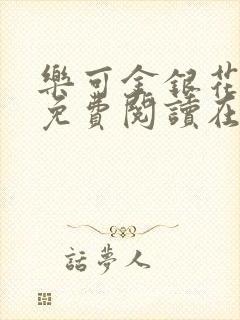 樂可金銀花
免費閱讀在
話夢人